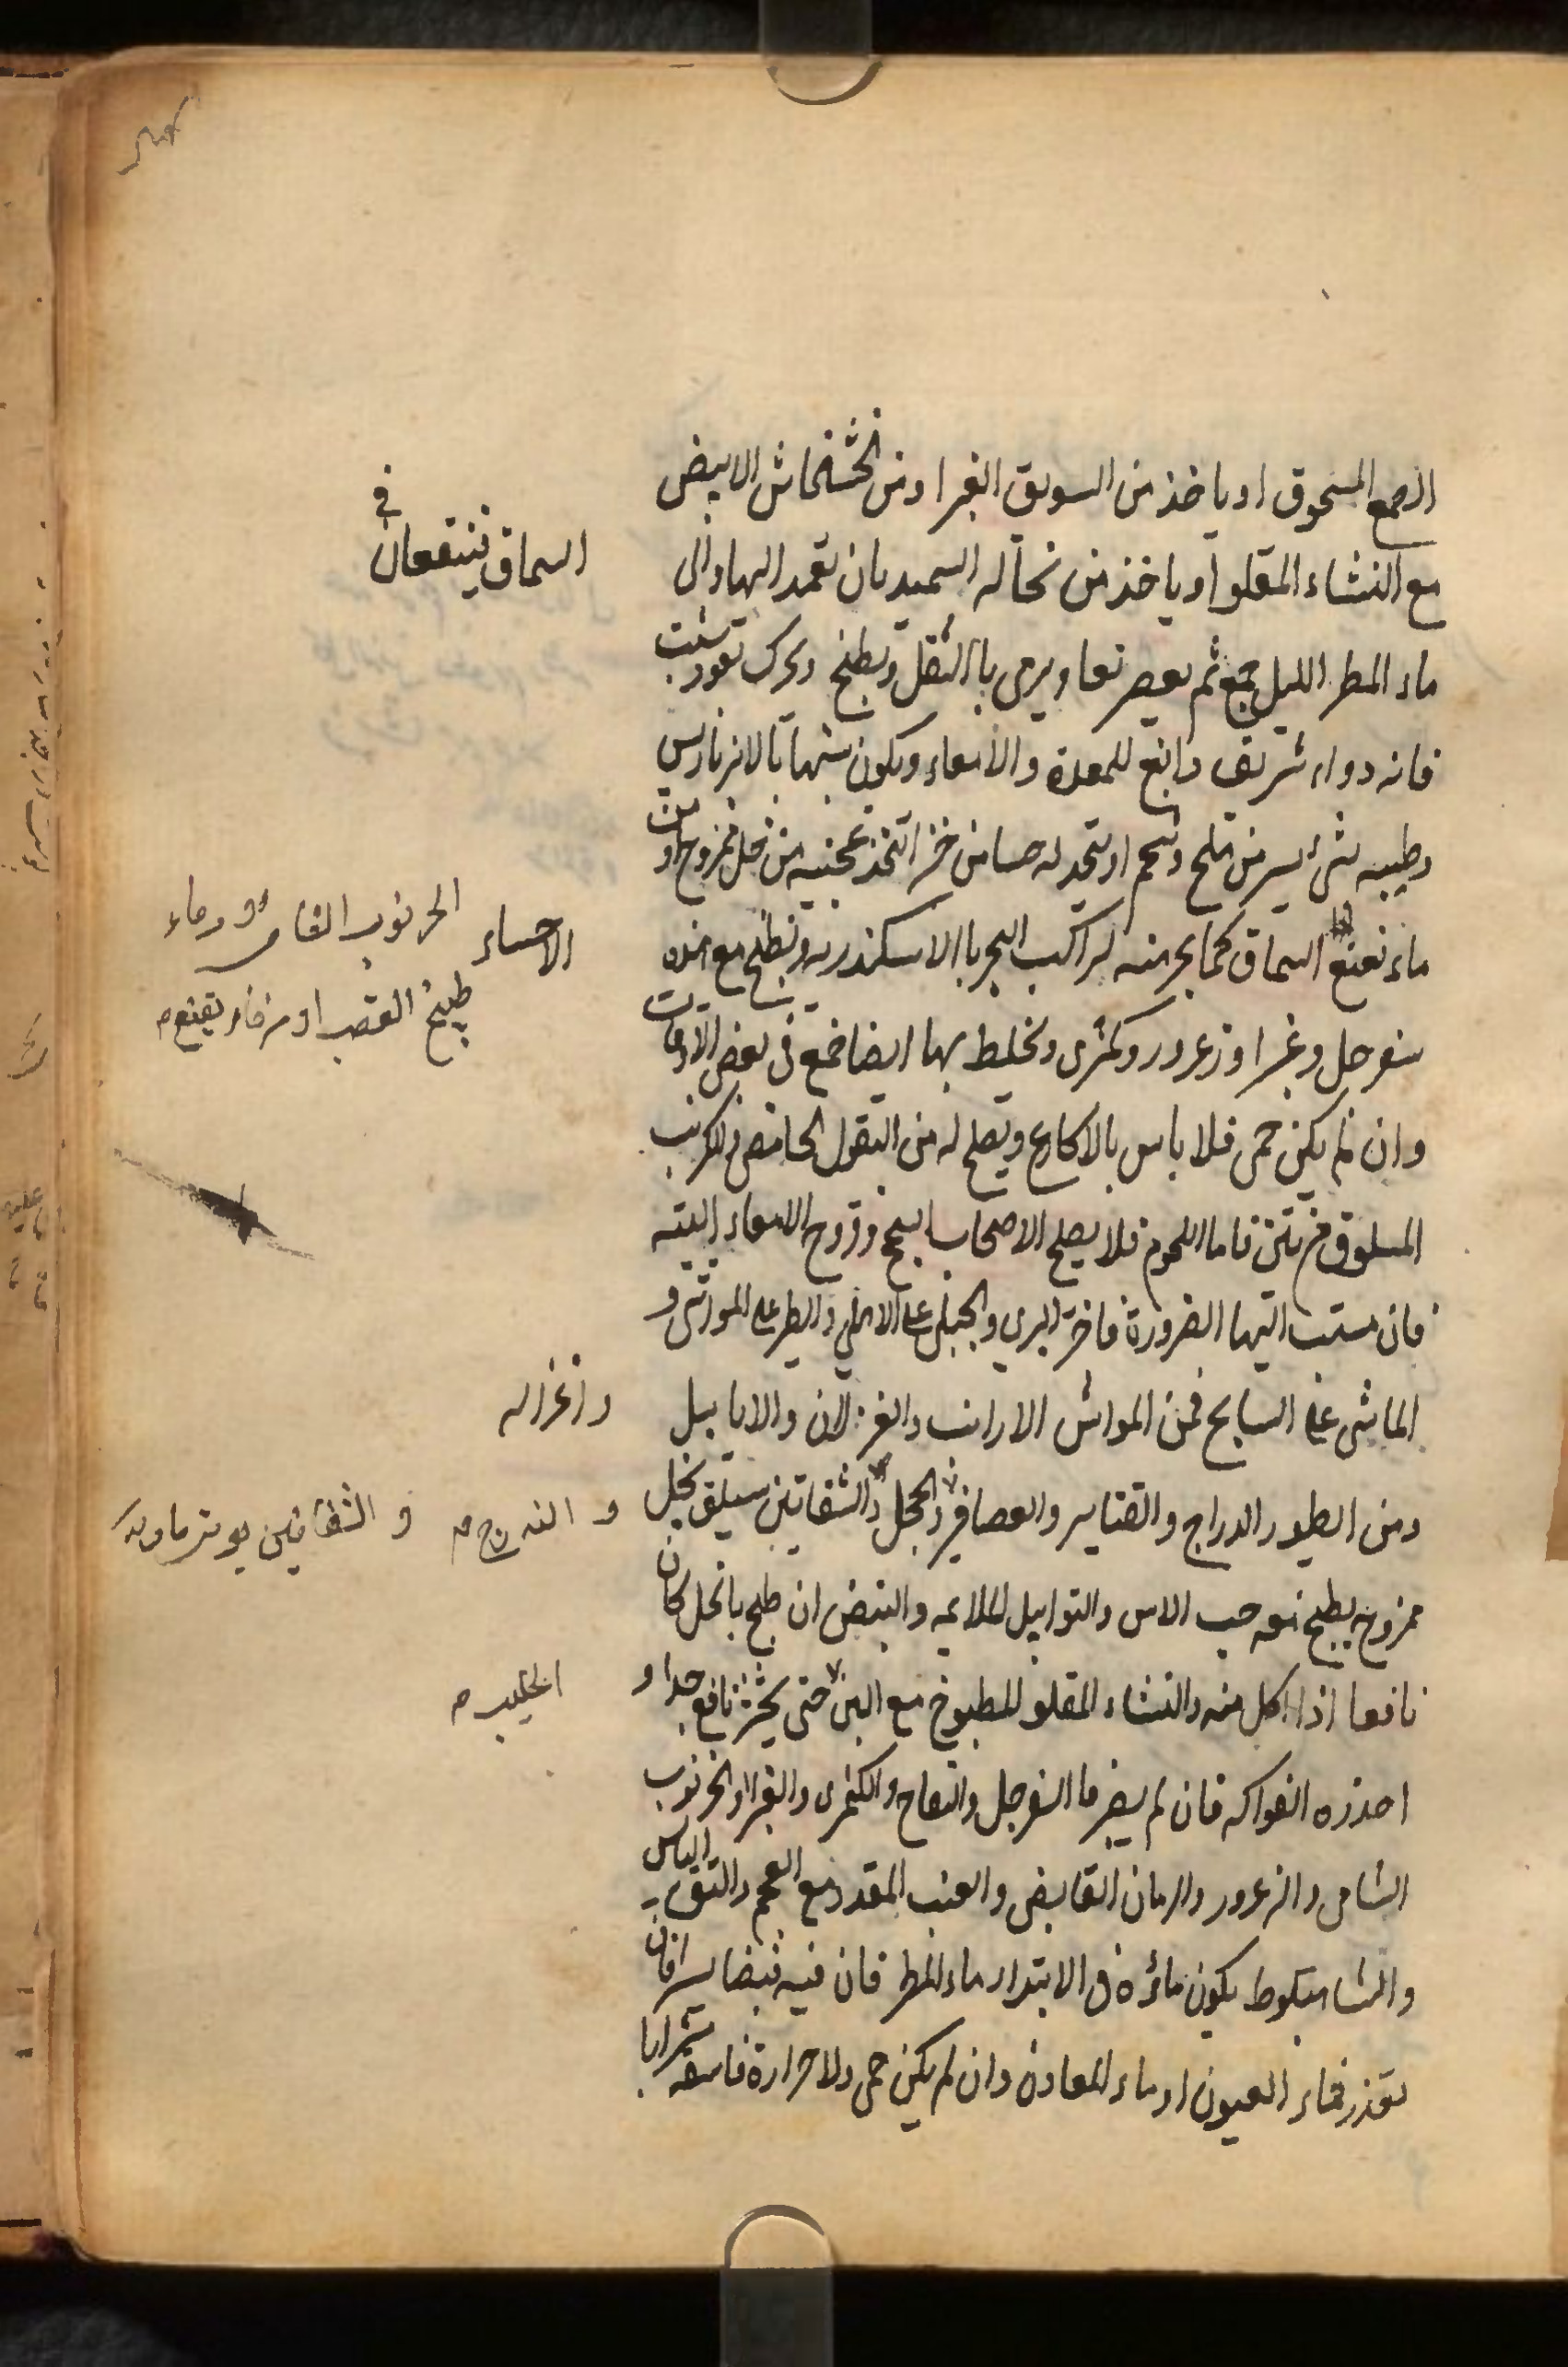 الصمغ المسحوق او ياخذ من السويق الغبرا ومن الخشخاش الابيض
مع النشاء المقلو او ياخذ من نخاله السميد بان تعمد اليها والى
ماء المطر الليل جمع ثم يعصر نعما ويرمى باالثقل ويطبخ ويحرك بعود شبت
فانه دواء شريف دابغ للمعدة والامعاء ويكون شبيها بالانبرباريس
وطيبه بشئ يسير من ملح وشحم او يتخد له حسا من خبز اتخذ عجنيه من خل ممزوج او من
ماء نعنع السماق كما يجر منه لراكب البحر باالاسكندريه ويطبخ مع هذه
سفرجل وغبرا وزعرور وكمثرى ويخلط بها ايضا صمغ فى بعض الاوقات
وان لم يكن حمى فلا باس بالاكارع ويصلح له من البقول الحامض والكرنب
المسلوق مرتين فاما اللحوم فلا يصلح الاصحاب السحج وقروح الامعاء البته
فان مست اليها الضرورة فاختر البري والجبلى على الاهلي والطير على المواشى و
الماشى على السابح فمن المواشى الارانب والغزلان والايابيل
ومن الطيور الدراج والقنابر والعصافير والحجل والشفانين سيلق بخل
ممزوج يطبخ معه حب الاس والتوابيل الملايمه والبيض ان طبخ بالخل كان
نافعا اذا اكل منه والنشاء المقلو المطبوخ مع اللبن حتى يخثر نافع جدا و
احذره الفواكه فان لم يصبر فا السفرجل والتفاح والكمثرى والغبرا والخرنوب
الشامى والزعرور والرمان القابض والعنب المقدد مع العجم والنبق اليابس
والشاهبلوط يكون ماؤه فى الابتداء ماء المطر فان فيه قبضا يسيرا فان
تعذر فماء العيون او ماء المعادن وان لم يكن حمى ولا حرارة فاسقه شرابا
السماق ينتقعان فى
الاحساء
الخرنوب الشامى او رماء
طبيخ القصب او من ماء
وازغزاله
و التدرج
و الشفانين
الحليب